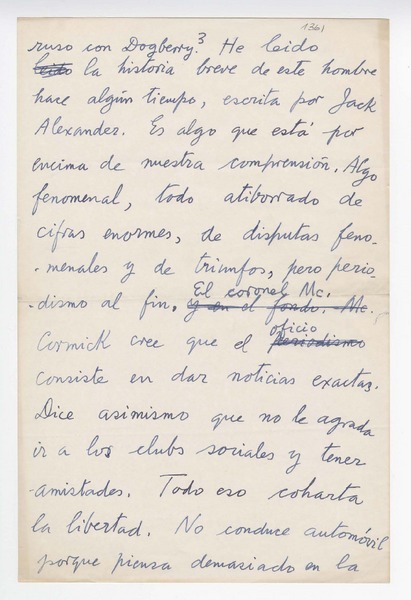 1361
ruso con Dogberry? 3 He leido
leido la historia breve de este hombre
hace algún tiempo, escrita por Jack
Alexander. Es algo que está por
encima de nuestra comprensión. Algo
fenomenal, todo atiborrado de
cifras enormes, de disputas feno-
-menales y de triunfos, pero perio-
El coronel Mc.
-dismo al fin. y en el fondo. Mc.
oficio
Cormick cree que el periodismo
consiste en dar noticias exactas.
Dice asimismo que no le agrada
ir a los clubs sociales y tener
-amistades. Todo eso coharta
la libertad. No conduce automóvil
porque piensa demasiado en la